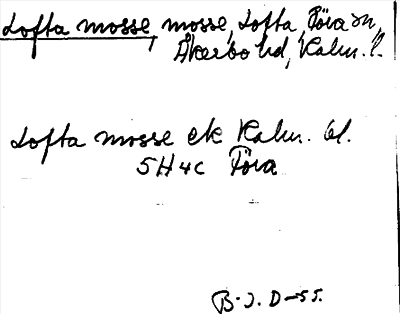 Lofta mosse, mosse, Lofta, Föra sn,
Åkerbo hd, Kalm. l.
Lofta mosse ek Kalm. bl.
5H4c Föra
B. J. D-55.